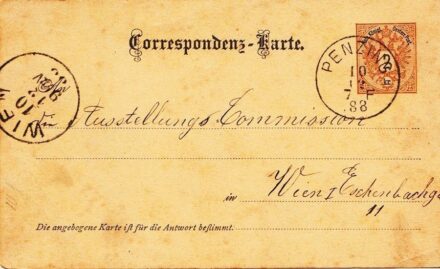 Correspondenz-Karte.
PENZING
10
12
7-F
88
WIEN
10 12
An Ausstellungs Commission
in Wien I Eschenbachg.
11
Die angebogene Karte ist für die Antwort bestimmt.